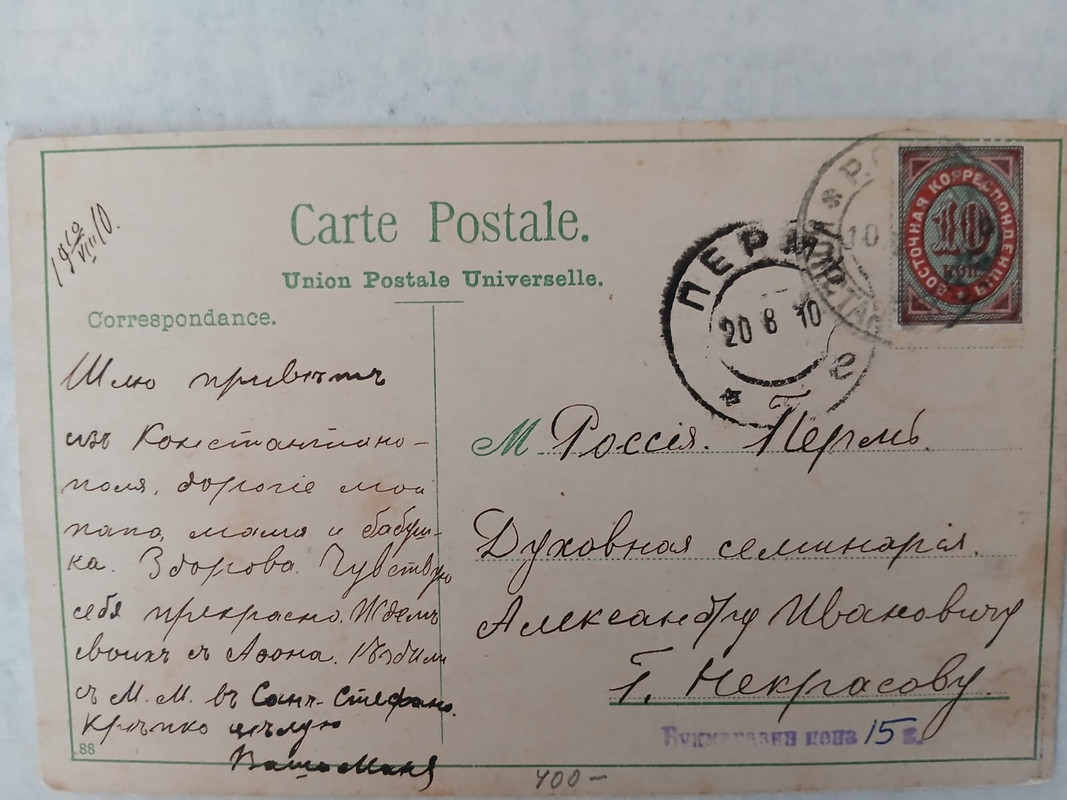 19 10/VIII 10.
Carte Postale.
Union Postale Universelle.
Correspondance.
Шлю привѣтъ
изъ Константино-
поля, дорогіе мои
папа, мама и бабуш-
ка. Здорова. Чувствую
себя прекрасно. Ждемъ
своихъ съ Аѳона. Ѣздили
съ М. М. въ Санъ-Стефано.
Крѣпко цѣлую
Ваша Маня
88
ВОСТОЧНАЯ КОРРЕСПОНДЕНЦІЯ
10
КОП.
ПЕРМЬ
20 8 10
М Россія. Пермь.
Духовная семинарія.
Александру Ивановичу
Г. Некрасову.
Букмагазин цена 15 к.
400-